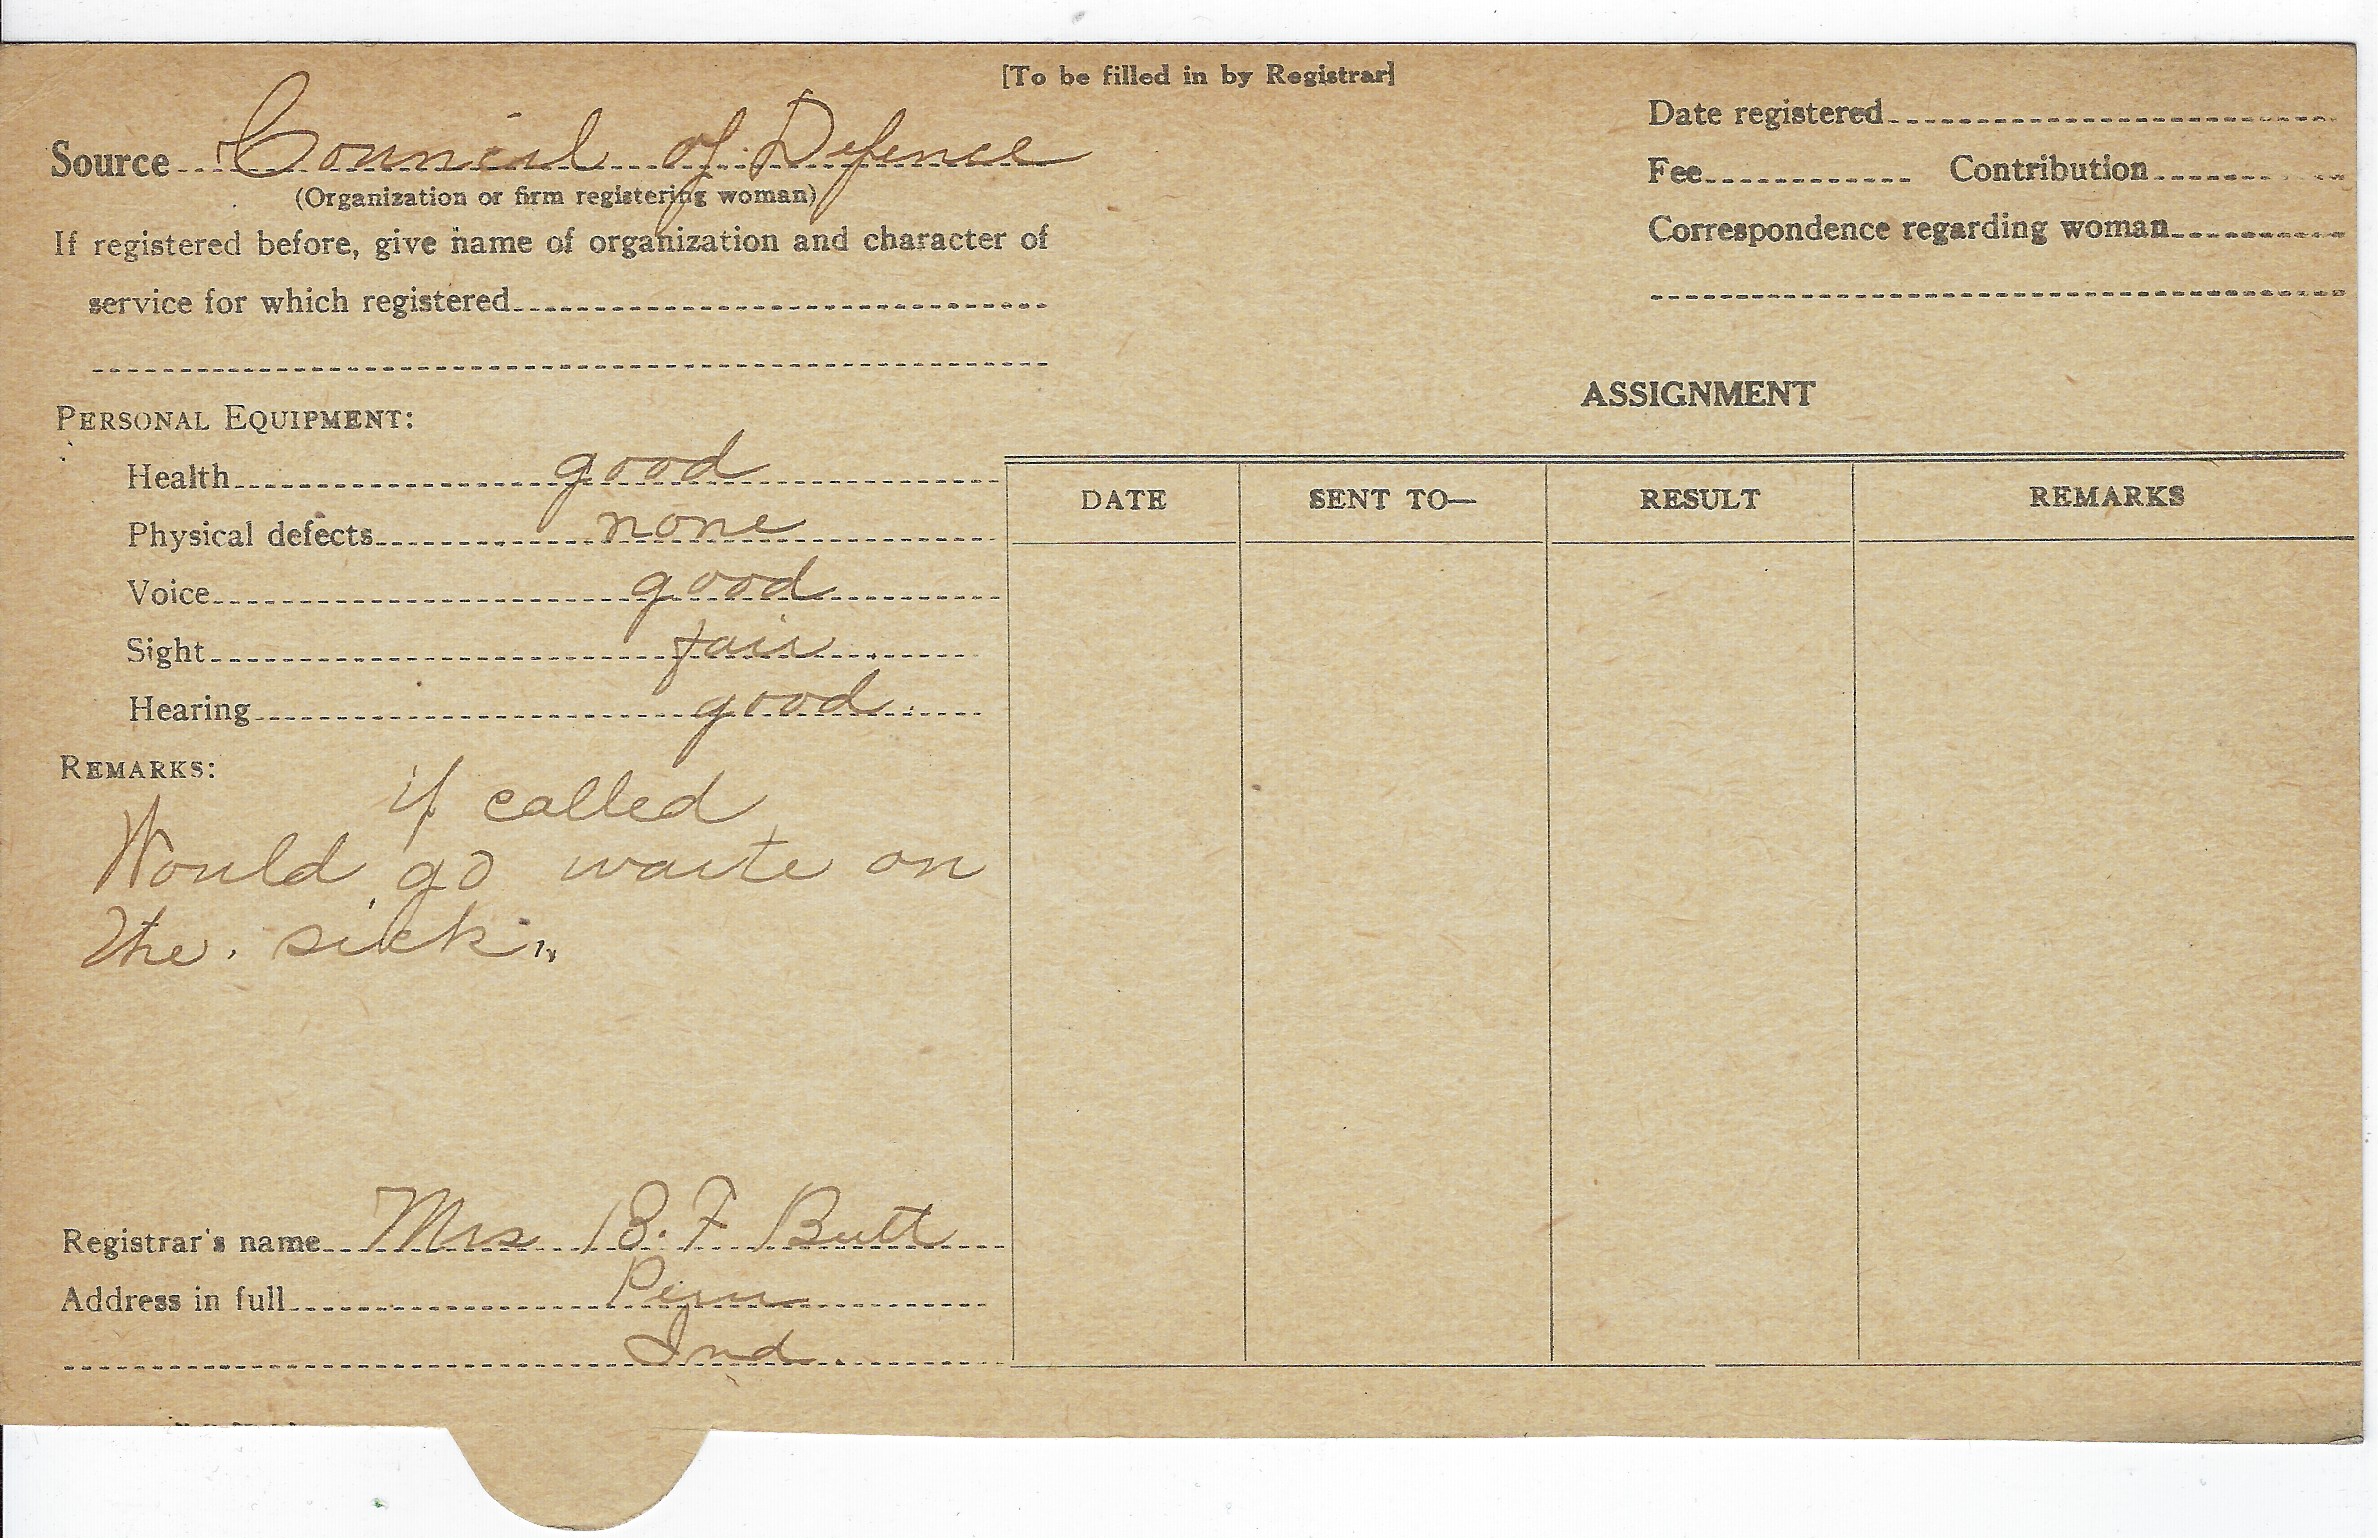 [To be filled in by Registrar]
Source Council of Defence
(Organization or firm registering woman)
If registered before, give name of organization and character of
service for which registered
Date registered
Fee Contribution
Correspondence regarding woman
PERSONAL EQUIPMENT:
Health good
Physical defects none
Voice good
Sight fair
Hearing good
REMARKS:
if called
Would go waite on
the sick
Registrar's name Mrs B. F Butt
Address in full Peru
Ind.
ASSIGNMENT
DATE SENT TO— RESULT REMARKS